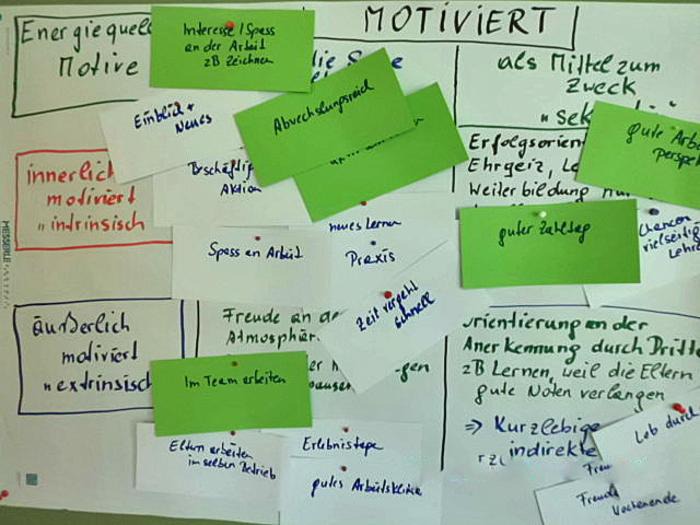 MOTIVIERT
Energiequell
Motive
Interesse / Spass
an der Arbeit
zB Zeichnen
die S
als Mittel zum
Zweck
"sek
Einblick +
Neues
Abwechslungsreich
gute "Arb
perspe
Erfolgsorien
Ehrgeiz, Le
Weiterbildung
innerlich
motiviert
"intrinsisch
Beschäftig
Aktion
neues Lernen
Praxis
Spass an Arbeit
guter Zahltag
Chancen
vielseitig
Lehr
Zeit vergeht
schnell
äußerlich
motiviert
"extrinsisch
Freude an de
Atmosphär
er
gen
Im Team arbeiten
orientierung an der
Anerkennung durch Dritte
zB Lernen, weil die Eltern
gute Noten verlangen
=> Kurzlebige
indirekte
Lob durch
Eltern arbeiten
im selben Betrieb
Erlebnistage
gutes Arbeitsklima
Freu
Freude
Wochenende